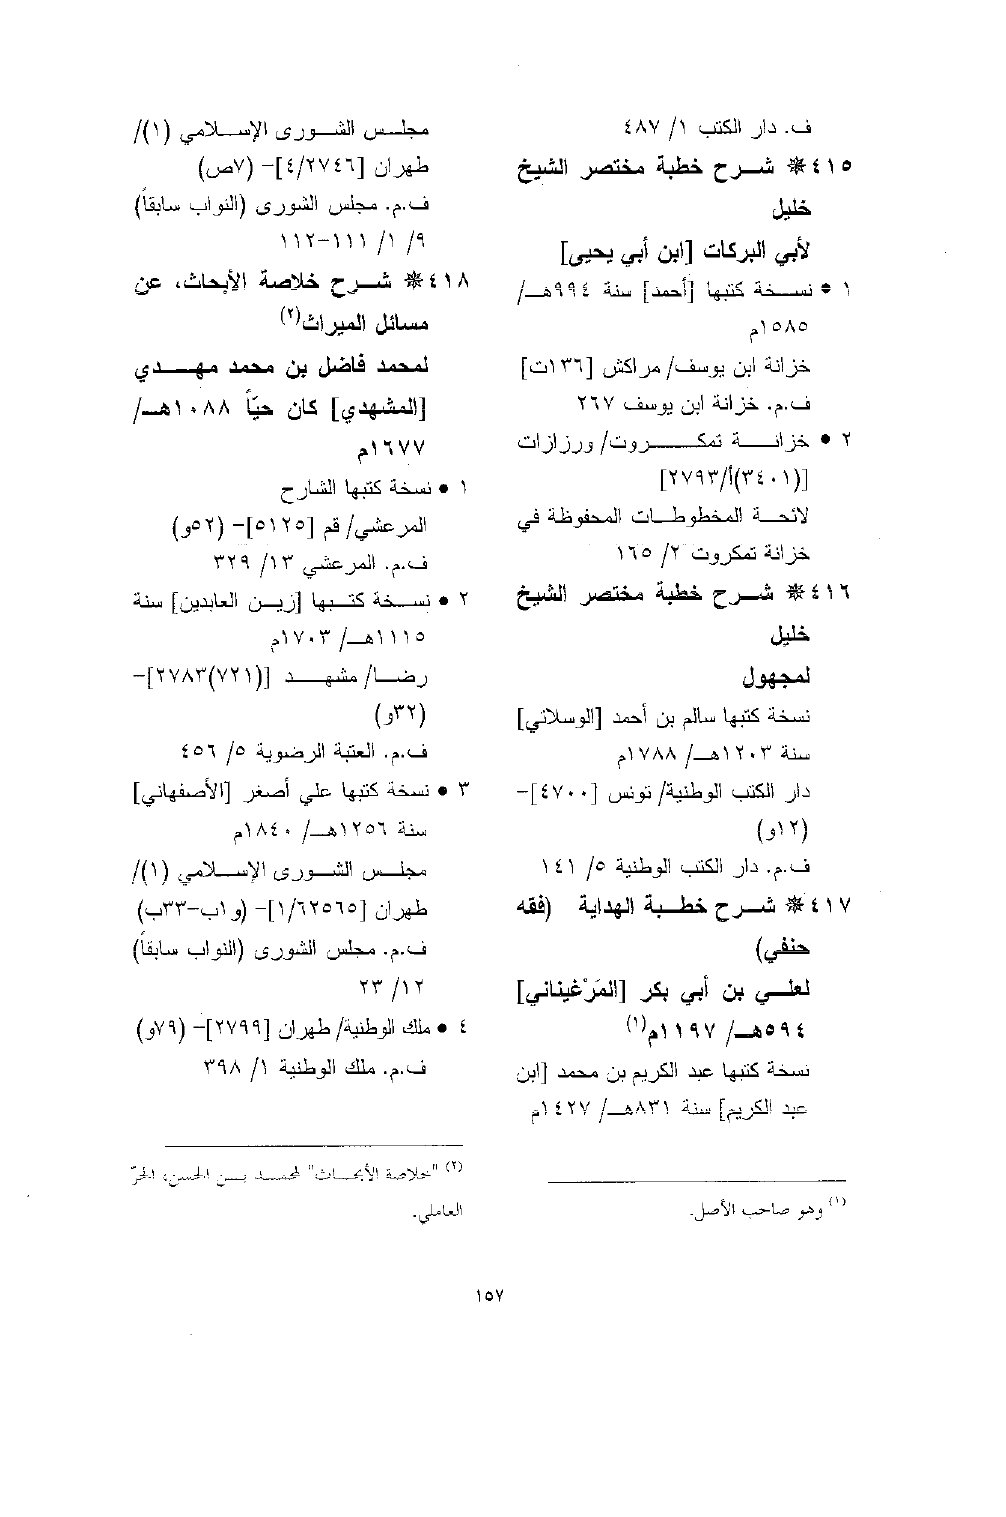 ف. دار الكتب ١/ ٤٨٧
٤١٥ * شرح خطبة مختصر الشيخ
خليل
لأبي البركات [ابن أبي يحيى]
١ • نسخة كتبها [أحمد] سنة ٩٩٤هـ/
١٥٨٥م
خزانة ابن يوسف/ مراكش [١٣٦ت]
ف.م. خزانة ابن يوسف ٢٦٧
٢ • خزانة تمكروت/ ورزازات
[(٣٤٠١)أ/٢٧٩٣]
لائحة المخطوطات المحفوظة في
خزانة تمكروت ٢/ ١٦٥
٤١٦ * شرح خطبة مختصر الشيخ
خليل
لمجهول
نسخة كتبها سالم بن أحمد [الوسلاتي]
سنة ١٢٠٣هـ/ ١٧٨٨م
دار الكتب الوطنية/ تونس [٤٧٠٠]-
(١٢و)
ف.م. دار الكتب الوطنية ٥/ ١٤١
٤١٧ * شرح خطبة الهداية (فقه
حنفي)
لعلي بن أبي بكر [المَرْغيناني]
٥٩٤هـ/ ١١٩٧م(١)
نسخة كتبها عبد الكريم بن محمد [ابن
عبد الكريم] سنة ٨٣١هـ/ ١٤٢٧م
(١) وهو صاحب الأصل.
مجلس الشورى الإسلامي (١)/
طهران [٤/٢٧٤٦]- (٧ص)
ف.م. مجلس الشورى (النواب سابقاً)
٩/ ١/ ١١١-١١٢
٤١٨ * شرح خلاصة الأبحاث، عن
مسائل الميراث(٢)
لمحمد فاضل بن محمد مهدي
[المشهدي] كان حيّاً ١٠٨٨هـ/
١٦٧٧م
١ • نسخة كتبها الشارح
المرعشي/ قم [٥١٢٥]- (٥٢و)
ف.م. المرعشي ١٣/ ٣٢٩
٢ • نسخة كتبها [زين العابدين] سنة
١١١٥هـ/ ١٧٠٣م
رضا/ مشهد [(٧٢١)٢٧٨٣]-
(٣٢و)
ف.م. العتبة الرضوية ٥/ ٤٥٦
٣ • نسخة كتبها علي أصغر [الأصفهاني]
سنة ١٢٥٦هـ/ ١٨٤٠م
مجلس الشورى الإسلامي (١)/
طهران [١/٦٢٥٦٥]- (و١ب-٣٣ب)
ف.م. مجلس الشورى (النواب سابقاً)
١٢/ ٢٣
٤ • ملك الوطنية/ طهران [٢٧٩٩]- (٧٩و)
ف.م. ملك الوطنية ١/ ٣٩٨
(٢) "خلاصة الأبحاث" لمحمد بن الحسن، الحرّ
العاملي.
١٥٧